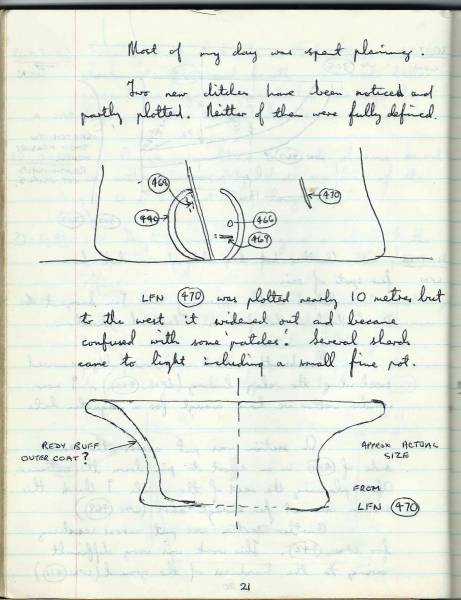 Most of my day was spent planning.
Two new ditches have been noticed and
partly plotted. Neither of them were fully defined.
468
446
466
469
470
LFN 470 was plotted nearly 10 metres but
to the west it widened out and became
confused with some 'patches'. Several sherds
came to light including a small fine pot.
REDY BUFF
OUTER COAT?
APPROX ACTUAL
SIZE
FROM
LFN 470
21